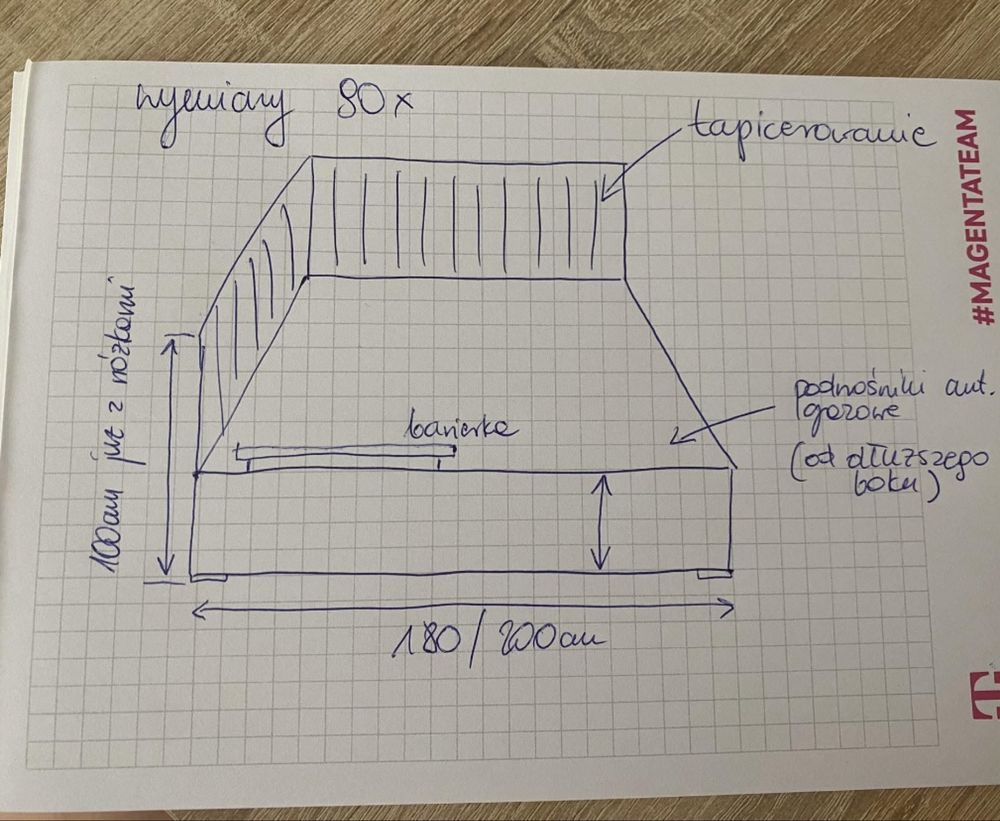 wymiary 90x
tapicerowanie
#MAGENTATEAM
100cm już z nóżkami
barierka
podnośniki aut.
gazowe
(od dłuższego
boku)
180/200cm
T